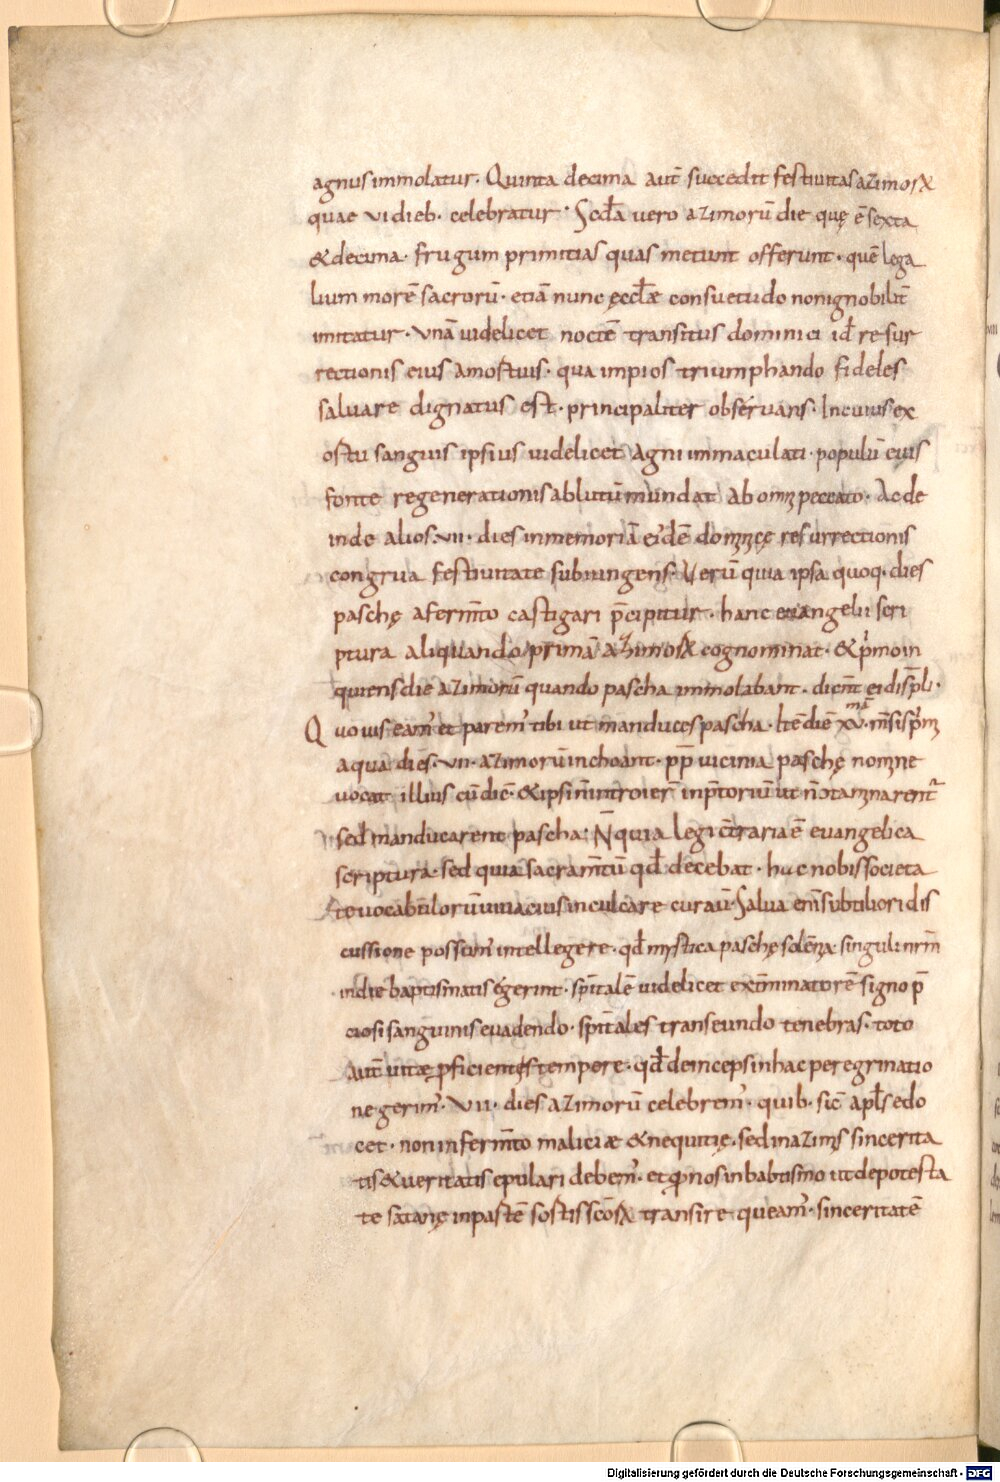 agnus immolatur. Quinta decima aut̄ succedit festiuitas azimoꝝ
quae vi dieb. celebratur. Scd̄a uero azimorū die quę ē sexta
& decima. frugum primitias quas metunt offerunt. quē lega
lium morē sacrorū. etiā nunc ęccl̄ae consuetudo non ignobilit̄
imitatur. Vnā uidelicet noctē transitus dominici id̄ resur
rectionis eius a mortuis. qua impios triumphando fideles
saluare dignatus est. principaliter obseruans. In cuius ex
ortu sanguis ipsius uidelicet agni immaculati. populū eius
fonte regenerationis ablutū mundat ab omī peccato. Ac de
inde alios .vii. dies in memoriā eidē dominicę resurrectionis
congrua festiuitate subiungens. Uerū quia ipsa quoq. dies
paschę a ferm̄to castigari p̄cipitur. hanc euangelii scri
ptura aliquando primā azimoꝝ cognominat. & p̄mo in
quiens die azimorū quando pascha immolabant. dicen̄t ei discip̄li.
Quo uis eam̄ et parem̄ tibi ut manduces pascha. Itē diē xv. m̄sis p̄mi
a qua dies .vii. azimorū inchoant. pp̄ uicinia paschę nomine
uocat illius cū diē. & ipsi n̄ introier̄ in p̄toriū ut n̄ contaminarent᷑
sed manducarent pascha. N̄ quia legi c̄traria ē euangelica
scriptura. sed quia sacram̄tū qd̄ decebat. huc nobis societa
te uocabulorū uiuacius inculcare curauit. Salua enī subtiliori dis
cussione possum̄ intellegere. qd̄ mystica paschę solēnia singuli nr̄m
in die baptismatis egerint. sp̄italē uidelicet ext̄minatorē signo p̄
ciosi sanguinis euadendo. sp̄itales transeundo tenebras. toto
aut̄ uitae ꝓficientes tempore. qd̄ deinceps in hac peregrinatio
ne gerim̄. VII. dies azimorū celebrem̄. quib. sic̄ apl̄s edo
cet. non in ferm̄to maliciae & nequitię. sed in azimis sincerita
tis & ueritatis epulari debem̄. et ꝙ nos in babtismo ut de potesta
te satanę in partē sortis sc̄oꝝ transire queam̄. sinceritatē
Digitalisierung gefördert durch die Deutsche Forschungsgemeinschaft - DFG